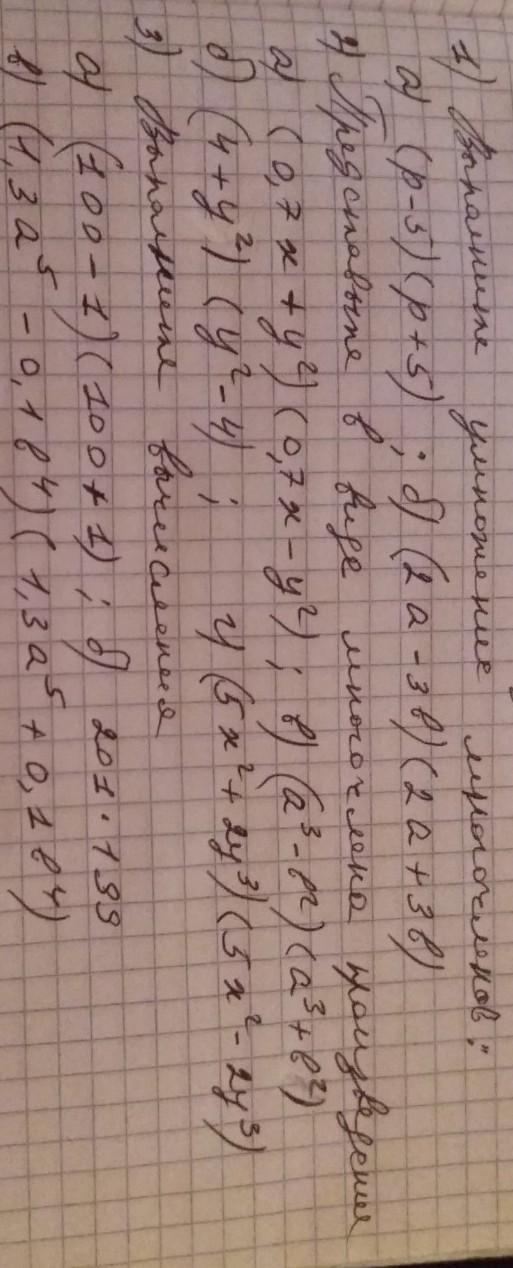 1) Выполните умножение многочленов:
а) (p-5)(p+5); б) (2a-3b)(2a+3b)
2) Представьте в виде многочлена произведения
а) (0,7x+y²)(0,7x-y²); в) (a³-b²)(a³+b²)
б) (4+y²)(y²-4); г) (5x²+2y³)(5x²-2y³)
3) Выполните вычисления
а) (100-1)(100+1); б) 201·199
в) (1,3a⁵-0,1b⁴)(1,3a⁵+0,1b⁴)